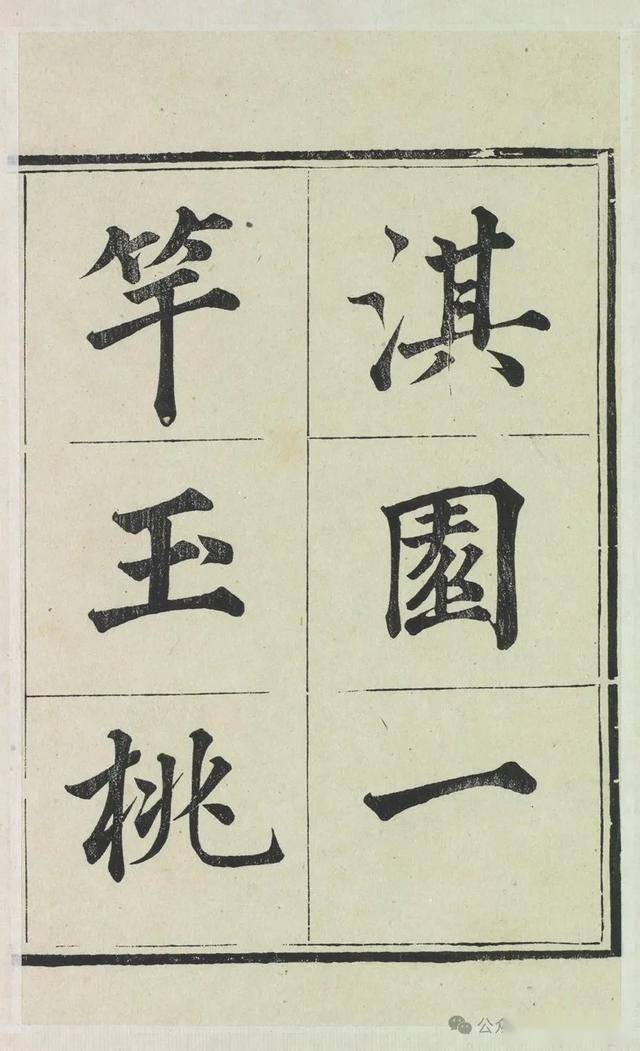 淇園一
竿玉桃
公众